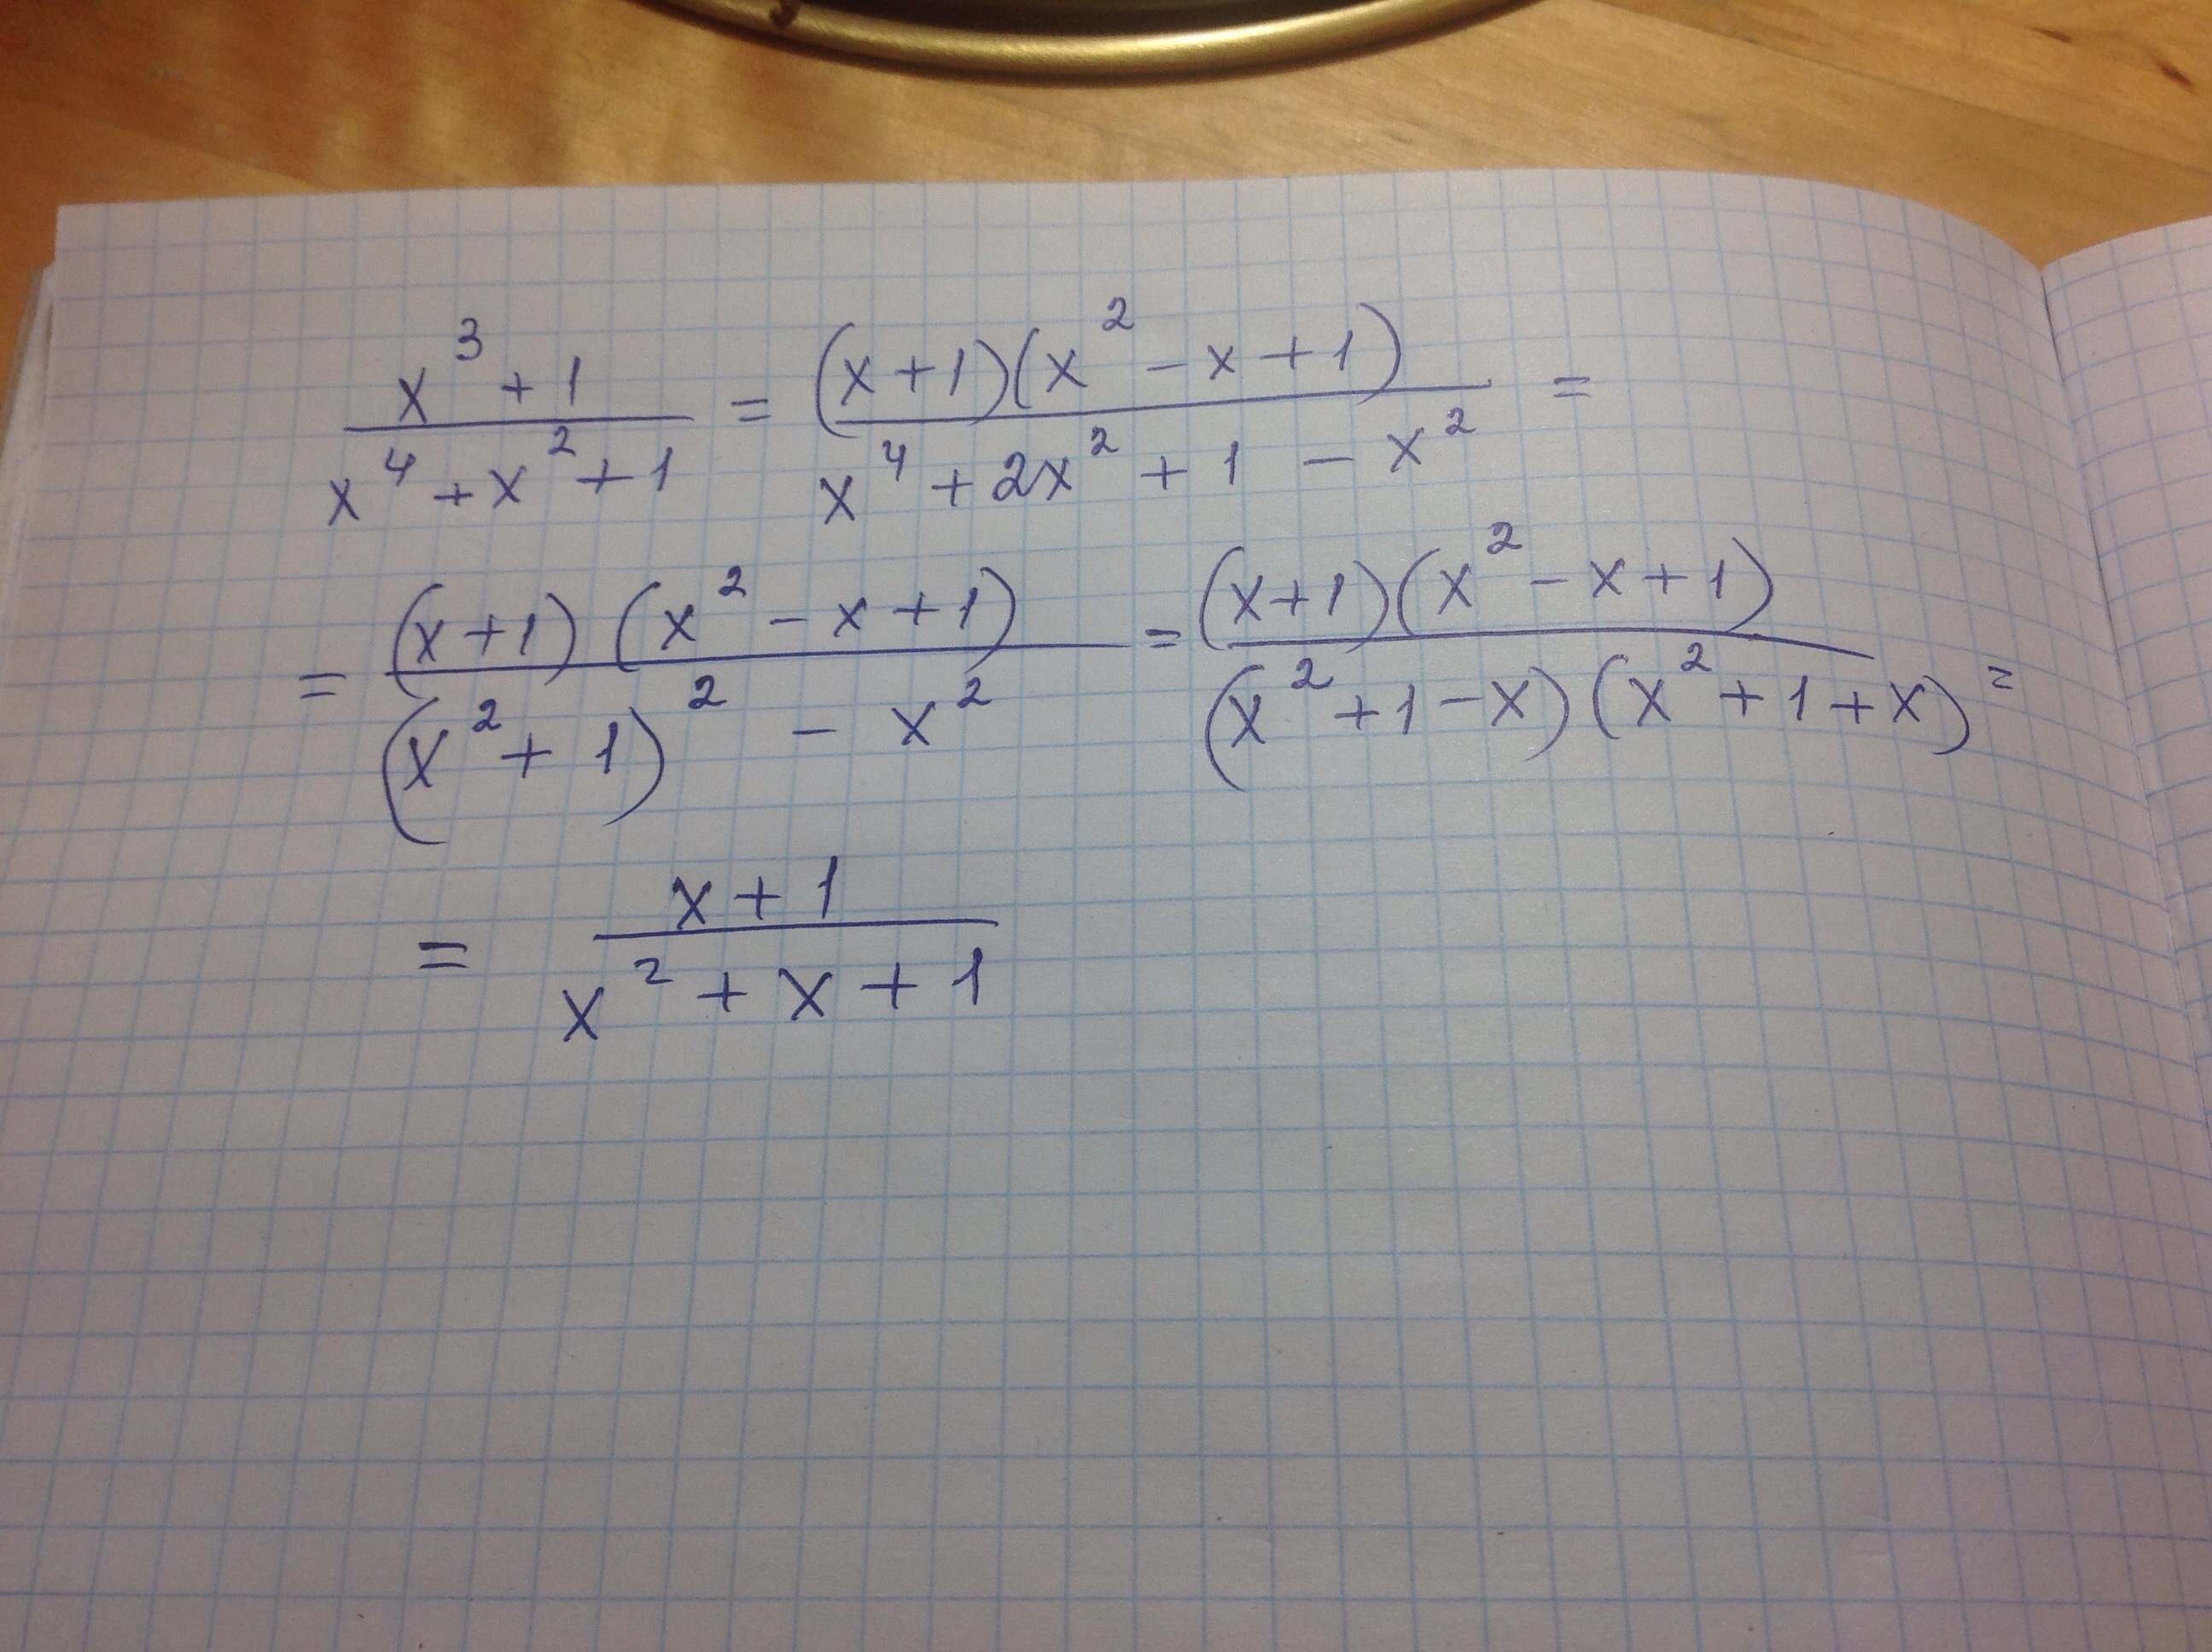 (x³ + 1)/(x⁴ + x² + 1) = ((x+1)(x² - x + 1))/(x⁴ + 2x² + 1 - x²) =
= ((x+1)(x² - x + 1))/((x² + 1)² - x²) = ((x+1)(x² - x + 1))/((x² + 1 - x)(x² + 1 + x)) =
= (x + 1)/(x² + x + 1)